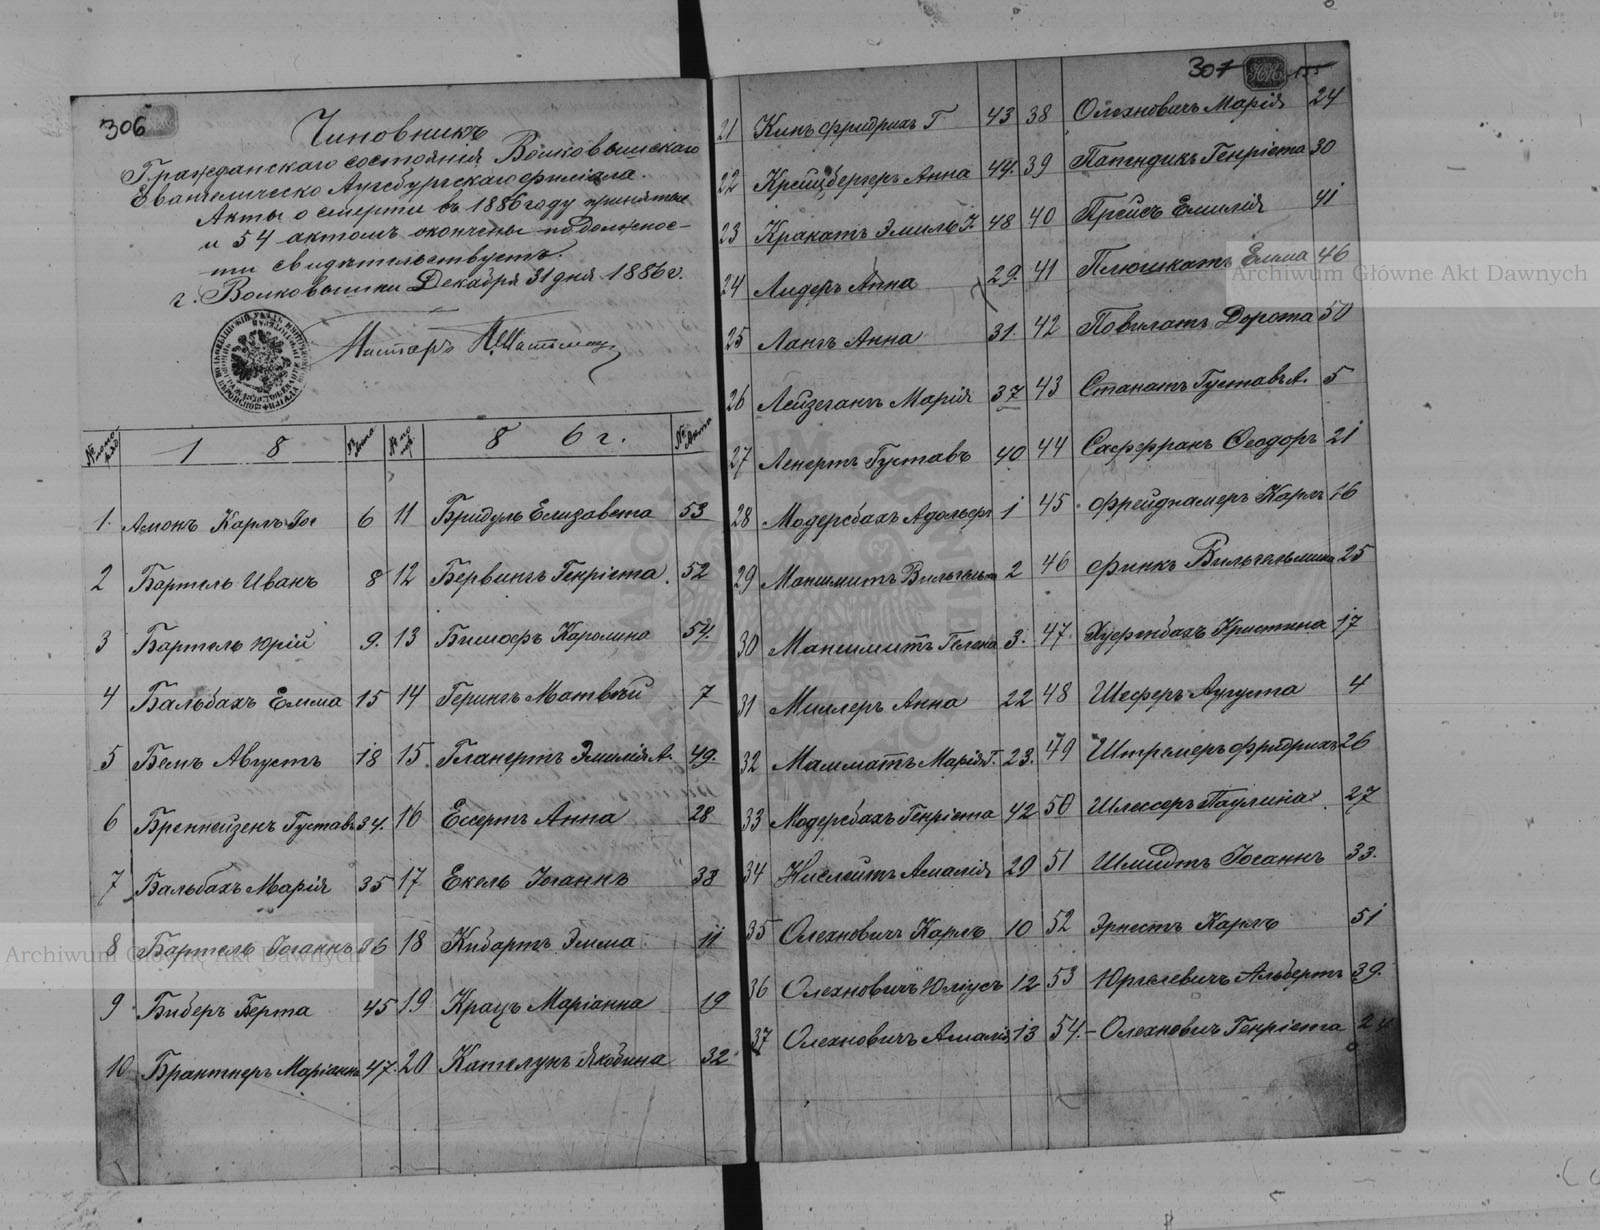 306
Чиновникъ
Гражданскаго состоянія Волковышскаго
Евангелическо Аугсбургскаго филіала.
Акты о смерти въ 1886 году приняты
и 54 актомъ окончены по должнос-
ти свидѣтельствуетъ.
г. Волковышки Декабря 31 дня 1886 г.
Пасторъ
1 8 8 6 г.
1. Амонъ Карлъ Іог 6 11 Бридуль Елизавета 53
2 Бартель Иванъ 8 12 Бервингъ Генріета 52
3 Бартель Юрій 9. 13 Бишофъ Каролина 54.
4 Бальбахъ Емма 15 14 Герингъ Матвѣй 7
5 Бемъ Августъ 18 15. Гланертъ Эмилія А. 49.
6 Бреннейзенъ Густавъ 34. 16 Ессертъ Анна 28
7 Бальбахъ Марія 35 17 Екель Іоганнъ 38
8 Бартель Іоганнъ 36 18 Кибартъ Эмма 11
9 Биберъ Берта 45 19 Крацъ Маріанна 19
10 Брантнеръ Маріанна 47. 20 Кателунъ Якобина 32
307
21 Кинъ Фридрихъ Г 43 38 Олехновичъ Марія 24
22 Крейцбергеръ Анна 44. 39 Папендикъ Генріета 30
23 Кракатъ Эмиль 48 40 Прейсъ Емилія 41
24 Лидеръ Анна 29. 41 Плюшкатъ Емма 46
25 Лангъ Анна 31. 42 Повилатъ Дорота 50
26 Лейзеганъ Марія 37 43 Станатъ Густавъ А. 5
27 Ленертъ Густавъ 40 44 Сафферранъ Ѳеодоръ 21
28 Модерсбахъ Адольфъ 1 45 Фрейднамеръ Карлъ 16
29 Маншмитъ Вильгельм 2 46 Финкъ Вильгельмина 25
30 Маншмитъ Гелена 3. 47. Хуфенбахъ Кристина 17
31 Миллеръ Анна 22 48 Шеферъ Аугуста 4
32 Мамматъ Марія Г. 23. 49 Штремеръ Фридрихъ 26
33 Модерсбахъ Генріета 42 50 Шлессеръ Паулина 27
34 Нислейтъ Амалія 20 51 Шмидтъ Іоганнъ 33.
35 Олехновичъ Карлъ 10 52 Эрнестъ Карлъ 51
36 Олехновичъ Юліусъ 12 53 Юргелевичъ Альбертъ 39.
37 Олехновичъ Амалія 13 54. - Олехновичъ Генріета
Archiwum Główne Akt Dawnych
Archiwum Główne Akt Dawnych